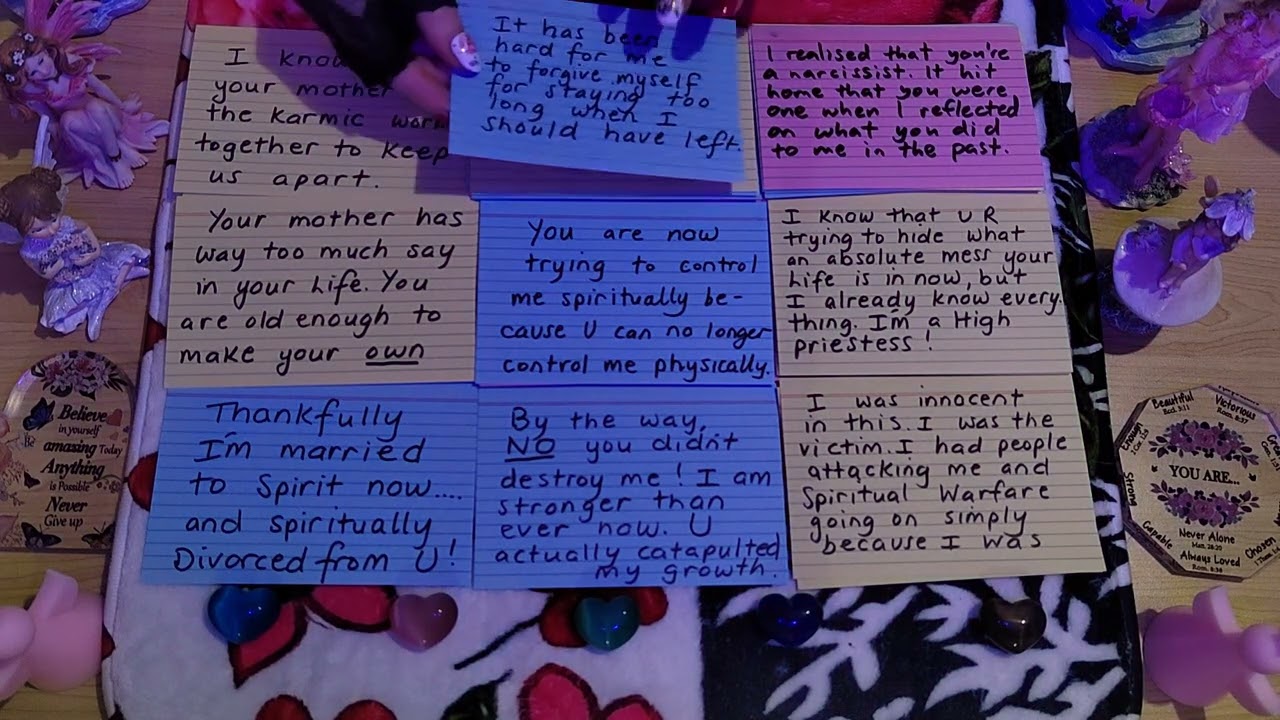 I know
your mother
the karmic
together to keep
us apart.
It has been
hard for me
to forgive myself
for staying too
long when I
should have left.
I realised that you're
a narcissist. It hit
home that you were
one when I reflected
on what you did
to me in the past.
Your mother has
way too much say
in your Life. You
are old enough to
make your own
You are now
trying to control
me spiritually be-
cause U can no longer
control me physically.
I know that U R
trying to hide what
an absolute mess your
Life is in now, but
I already know every
thing. I'm a High
priestess!
Thankfully
I'm married
to Spirit now....
and spiritually
Divorced from U!
By the way,
NO you didn't
destroy me! I am
stronger than
ever now. U
actually catapulted
my growth.
I was innocent
in this. I was the
victim. I had people
attacking me and
Spiritual Warfare
going on simply
because I was
Believe
in yourself
Be
amazing Today
Anything
is Possible
Never
Give up
Beautiful
Victorious
Strong
YOU ARE...
Capable
Chosen
Never Alone
Always Loved